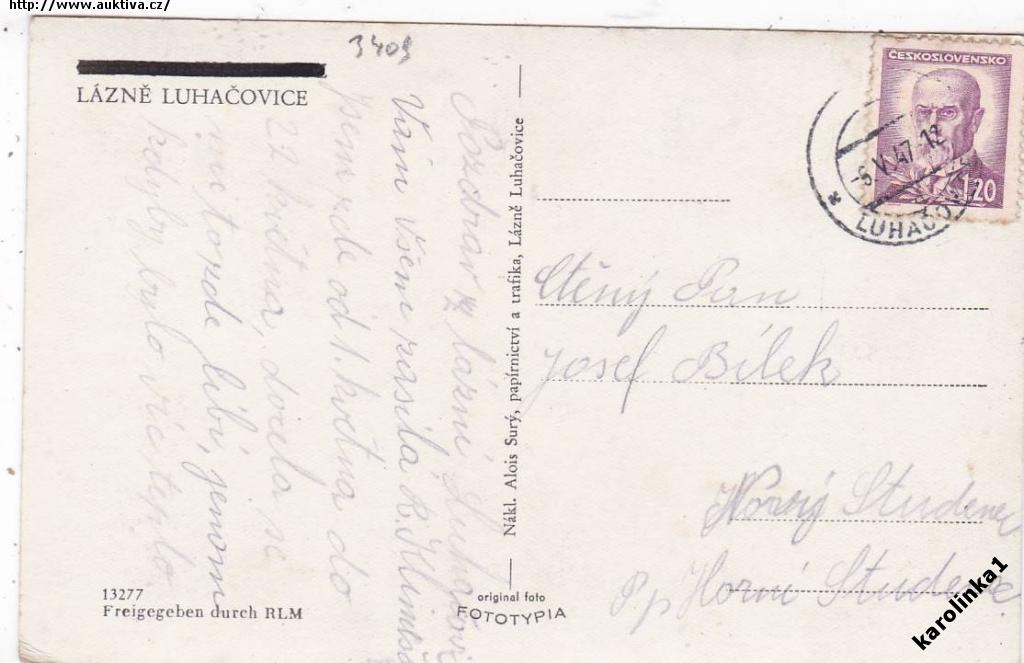 http://www.auktiva.cz/
3409
LÁZNĚ LUHAČOVICE
Pozdrav z lázní Luhačovic
Vám všem zasílá R.
jsem zde od 1. května do
22 května, docela se
mi to zde líbí, jenom
kdyby bylo více teplo.
13277
Freigegeben durch RLM
Nákl. Alois Surý, papírnictví a trafika, Lázně Luhačovice
original foto
FOTOTYPIA
ČESKOSLOVENSKO
1.20
-6.V.47-12
LUHAČOV
Ctěný Pan
Josef Bílek
Nový Studenec
Pp Horní Studenec
karolinka1